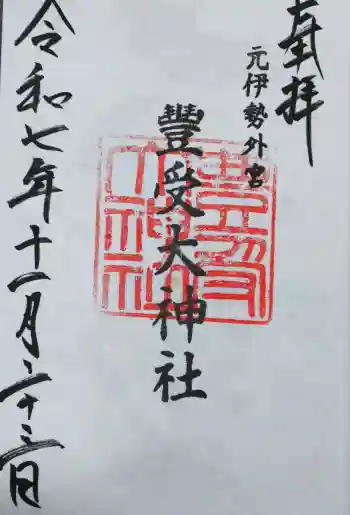 奉拝
元伊勢外宮
豊受大神社
令和七年十一月二十三日